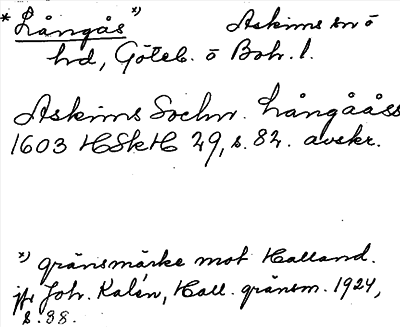 * Långås *) Askims sn ō
hd, Göteb. ō Boh. l.
Askims Sochn. Långååss
1603 HSkH 29, s. 82. avskr.
*) gränsmärke mot Halland.
jfr Joh. Kalén, Hall. gränsm. 1924,
s. 38.